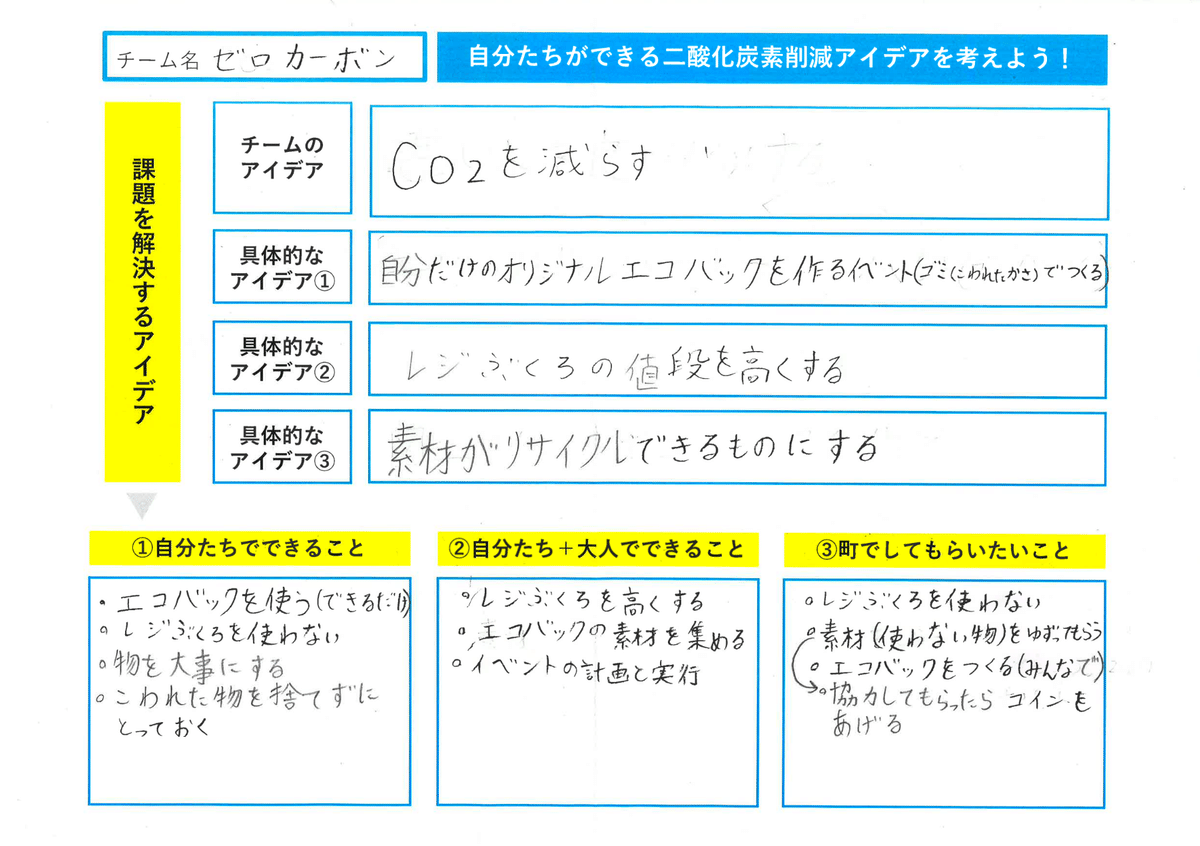 チーム名 ゼロカーボン
自分たちができる二酸化炭素削減アイデアを考えよう！
課題を解決するアイデア
チームの
アイデア
CO2を減らす
具体的な
アイデア①
自分だけのオリジナルエコバックを作るイベント(ゴミ(こわれたかさ)でつくる)
具体的な
アイデア②
レジぶくろの値段を高くする
具体的な
アイデア③
素材がリサイクルできるものにする
①自分たちでできること
・エコバックを使う(できるだけ)
○レジぶくろを使わない
○物を大事にする
○こわれた物を捨てずに
とっておく
②自分たち＋大人でできること
○レジぶくろを高くする
○エコバックの素材を集める
○イベントの計画と実行
③町でしてもらいたいこと
○レジぶくろを使わない
○素材(使わない物)をゆずってもらう
○エコバックをつくる(みんなで)
○協力してもらったらコインを
あげる